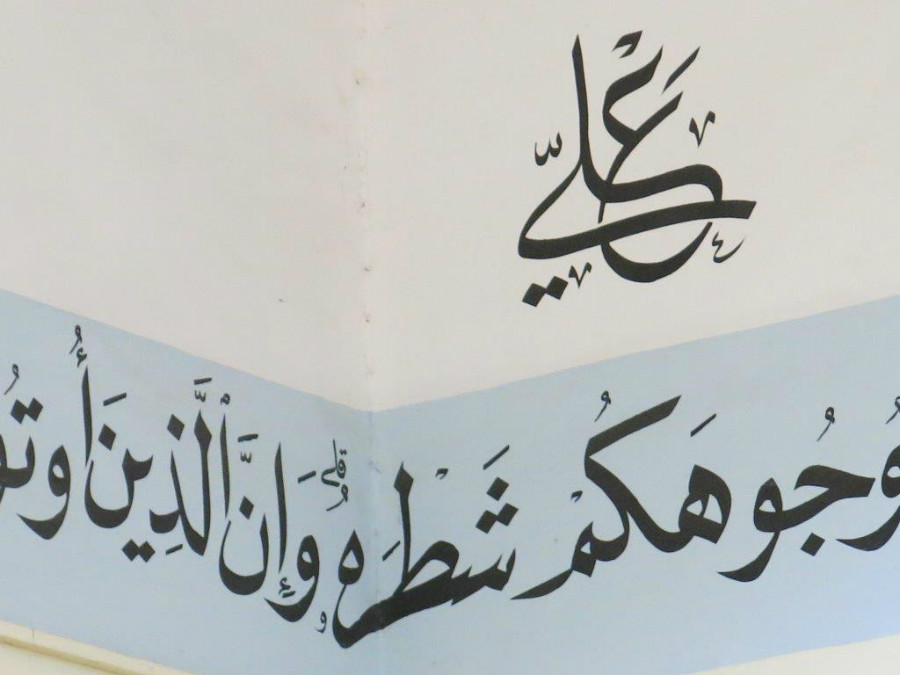 علي
وُجُوهَكُمْ شَطْرَهُۥ ۗ وَإِنَّ ٱلَّذِينَ أُوتُو